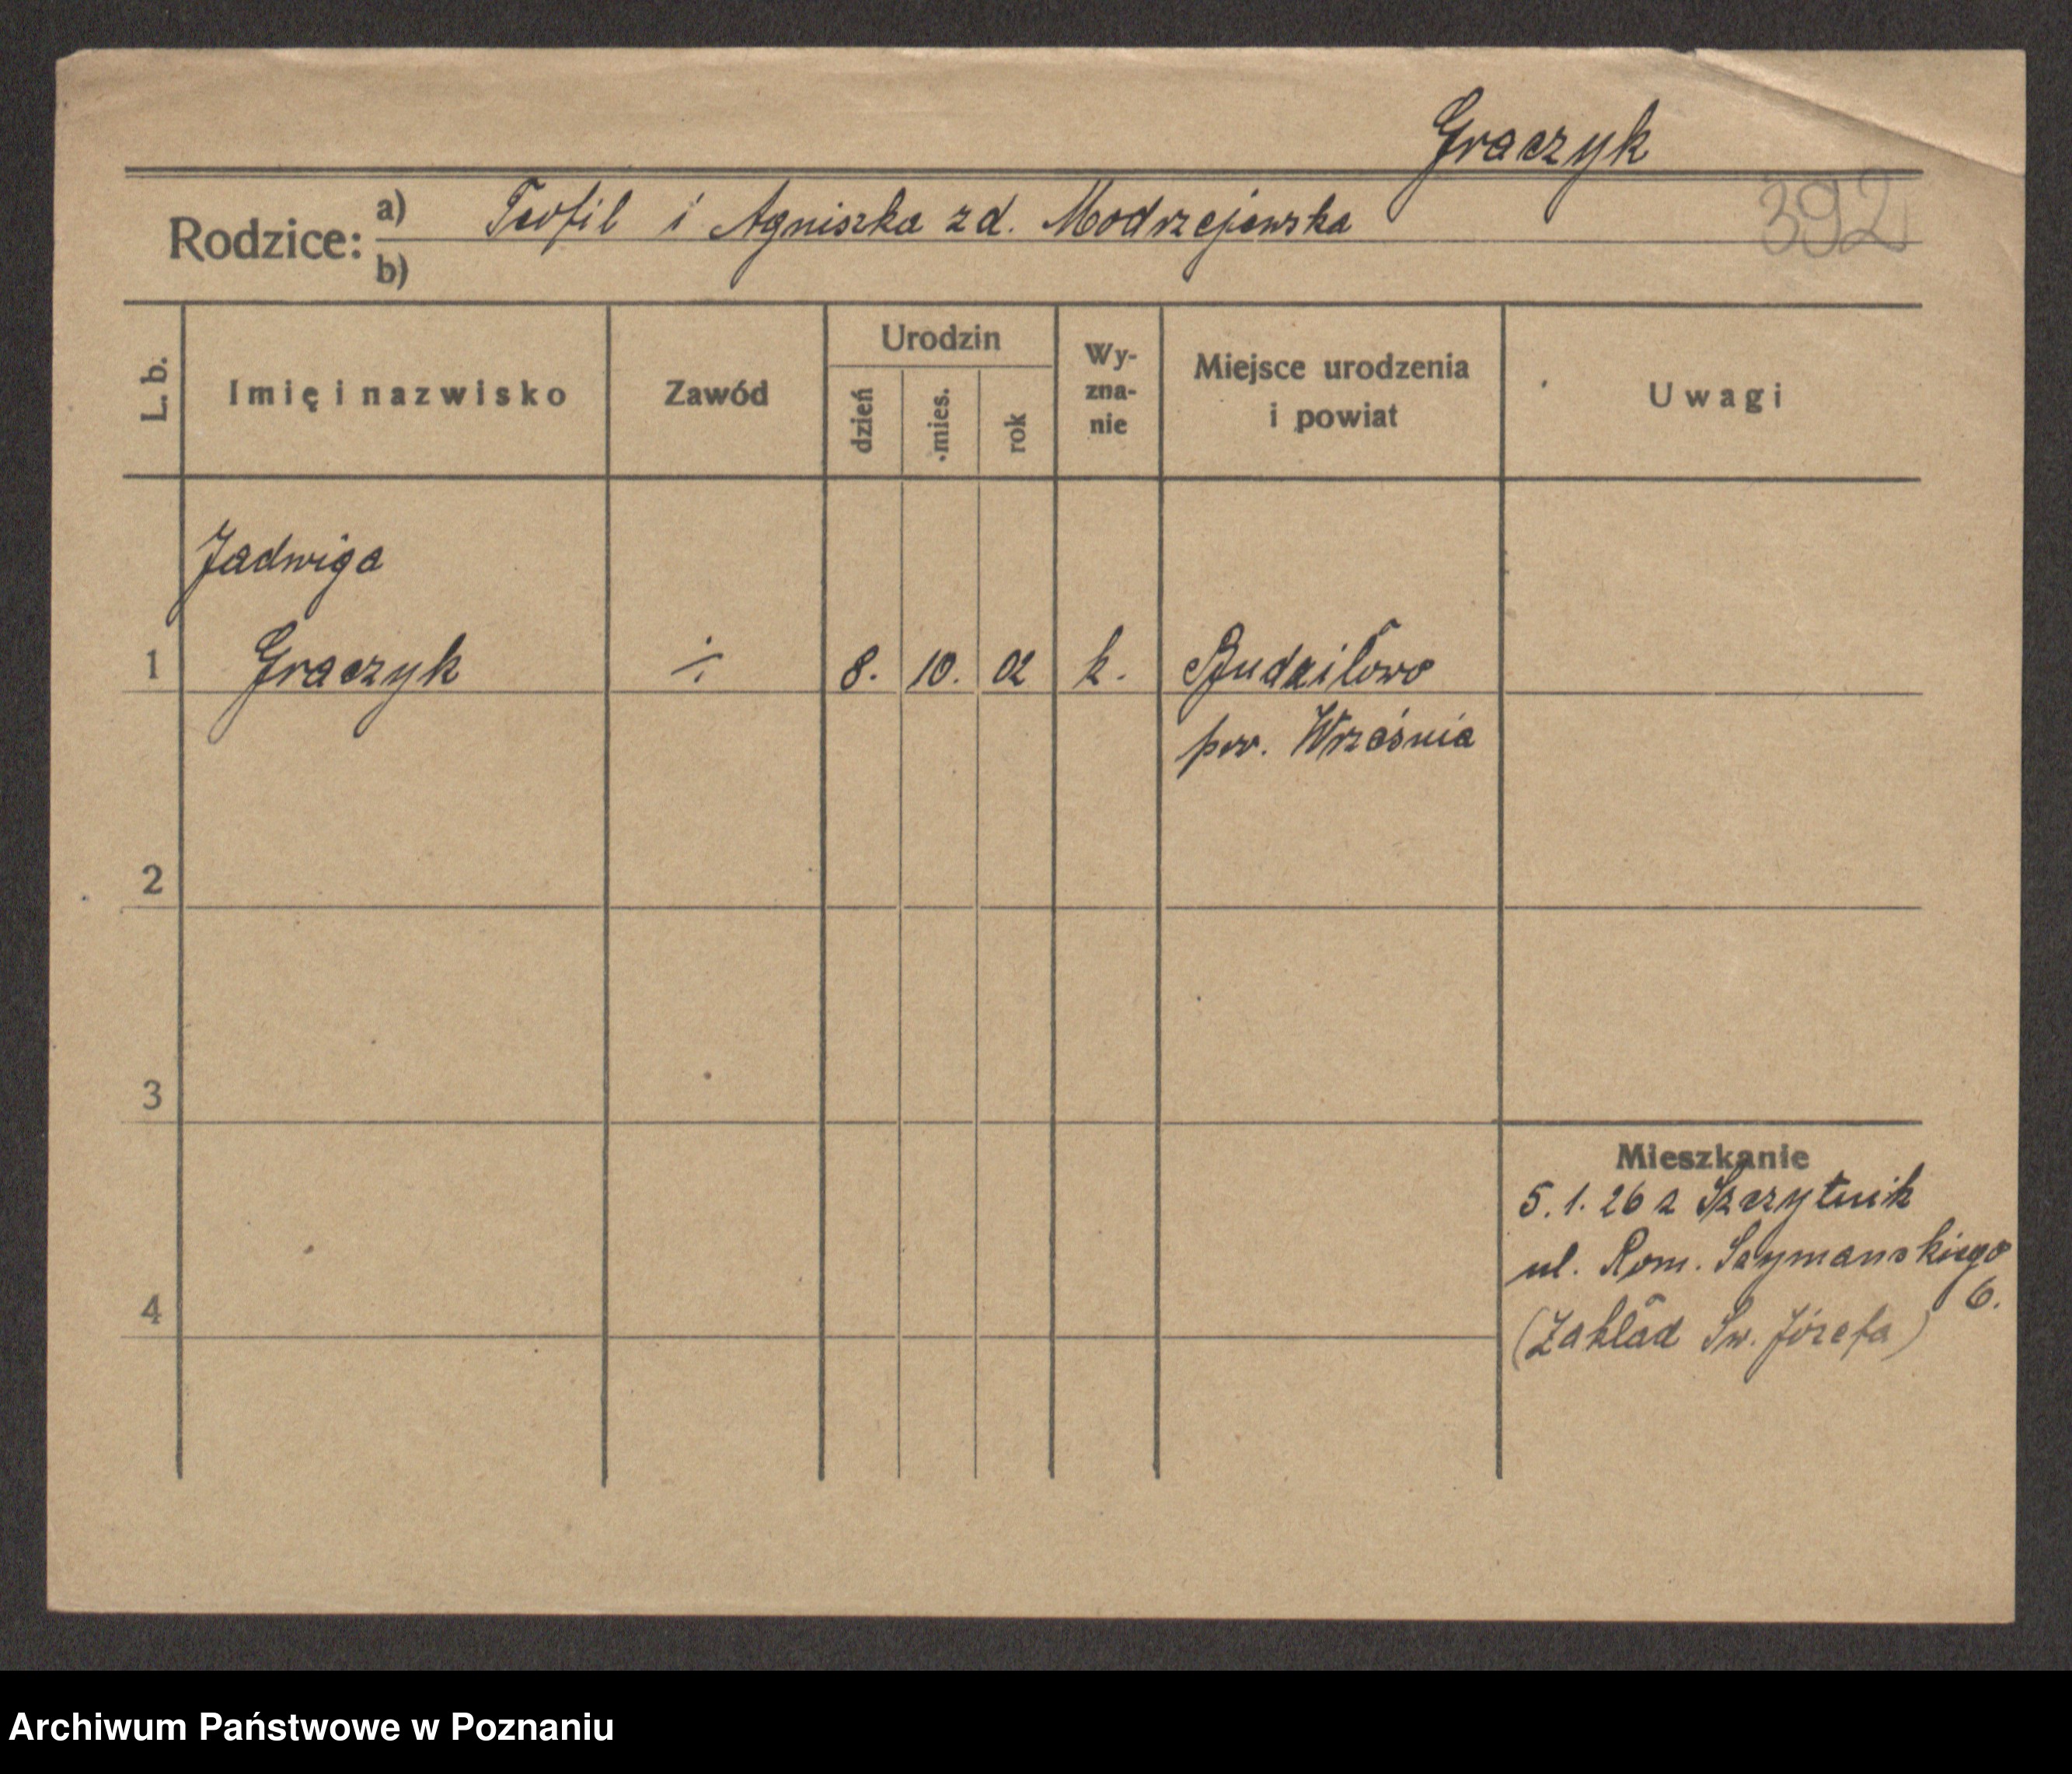 Graczyk
392
Rodzice: a) Teofil i Agniszka zd. Modrzejewska
b)
L. b.
Imię i nazwisko
Zawód
Urodzin
dzień
mies.
rok
Wy-
zna-
nie
Miejsce urodzenia
i powiat
Uwagi
Jadwiga
1 Graczyk ÷ 8. 10. 02 k. Budziłowo
pow. Września
2
3
Mieszkanie
5. 1. 26 z Szczytnik
ul. Rom. Szymanskiego
6.
4
(Zakład Św. Józefa)
Archiwum Państwowe w Poznaniu